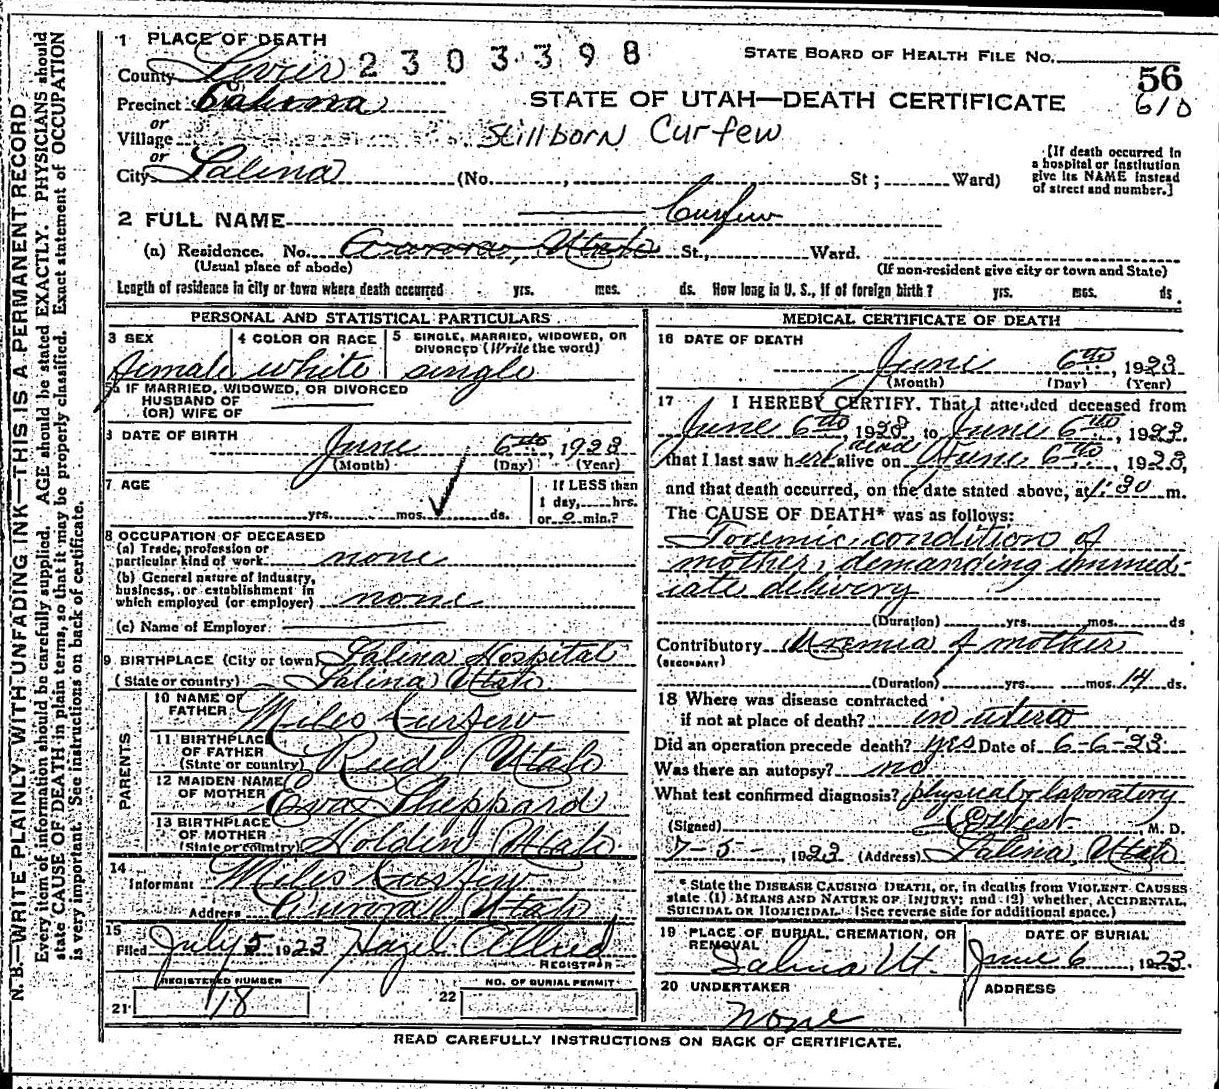 N. B.—WRITE PLAINLY WITH UNFADING INK—THIS IS A PERMANENT RECORD
Every item of information should be carefully supplied. AGE should be stated EXACTLY. PHYSICIANS should
state CAUSE OF DEATH in plain terms, so that it may be properly classified. Exact statement of OCCUPATION
is very important. See instructions on back of certificate.
1 PLACE OF DEATH
County Sevier 2303398
STATE BOARD OF HEALTH FILE No.
56
610
Precinct Salina
STATE OF UTAH—DEATH CERTIFICATE
or
Village
Stillborn Curfew
or
City Salina (No. , St ; Ward)
[If death occurred in
a hospital or institution
give its NAME instead
of street and number.]
2 FULL NAME Curfew
(a) Residence. No. Aurora, Utah St., Ward.
(Usual place of abode) (If non-resident give city or town and State)
Length of residence in city or town where death occurred yrs. mos. ds. How long in U. S., if of foreign birth? yrs. mos. ds.
PERSONAL AND STATISTICAL PARTICULARS
3 SEX
female
4 COLOR OR RACE
white
5 SINGLE, MARRIED, WIDOWED, OR
DIVORCED (Write the word)
single
5a IF MARRIED, WIDOWED, OR DIVORCED
HUSBAND OF
(OR) WIFE OF
6 DATE OF BIRTH
June 6th, 1923
(Month) (Day) (Year)
7 AGE
yrs. mos. ds.
If LESS than
1 day, hrs.
or 0 min.?
8 OCCUPATION OF DECEASED
(a) Trade, profession or
particular kind of work none
(b) General nature of Industry,
business, or establishment in
which employed (or employer) none
(c) Name of Employer
9 BIRTHPLACE (City or town) Salina Hospital
(State or country) Salina Utah
PARENTS
10 NAME OF
FATHER Miles Curfew
11 BIRTHPLACE
OF FATHER
(State or country) Utah
12 MAIDEN NAME
OF MOTHER Eva Sheppard
13 BIRTHPLACE
OF MOTHER
(State or country) Holden Utah
14
Informant Miles Curfew
Address Aurora Utah
15
Filed July 5 1923 Hazel Allred
REGISTRAR
REGISTERED NUMBER
21 18
NO. OF BURIAL PERMIT
22
MEDICAL CERTIFICATE OF DEATH
16 DATE OF DEATH
June 6th, 1923
(Month) (Day) (Year)
17 I HEREBY CERTIFY, That I attended deceased from
June 6th 1923 to June 6th, 1923.
dead
that I last saw her alive on June 6th, 1923,
and that death occurred, on the date stated above, at 1:30 m.
The CAUSE OF DEATH* was as follows:
Toxemic condition of
mother, demanding immed-
iate delivery
(Duration) yrs. mos. ds
Contributory Uremia of mother
(SECONDARY)
(Duration) yrs. mos. 14 ds.
18 Where was disease contracted
if not at place of death? in utero
Did an operation precede death? yes Date of 6-6-23
Was there an autopsy? no
What test confirmed diagnosis? physical & laboratory
(Signed) M. D.
7-5-, 1923 (Address) Salina, Utah
* State the DISEASE CAUSING DEATH, or, in deaths from VIOLENT CAUSES
state (1) MEANS AND NATURE OF INJURY; and (2) whether, ACCIDENTAL,
SUICIDAL OR HOMICIDAL. (See reverse side for additional space.)
19 PLACE OF BURIAL, CREMATION, OR
REMOVAL
Salina Ut.
DATE OF BURIAL
June 6, 1923
20 UNDERTAKER
none
ADDRESS
READ CAREFULLY INSTRUCTIONS ON BACK OF CERTIFICATE.